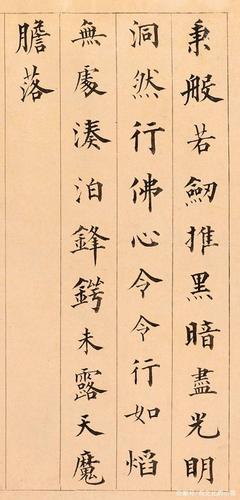 秉般若劒摧黑暗盡光明
洞然行佛心令令行如熖
無處湊泊鋒鍔未露天魔
膽落